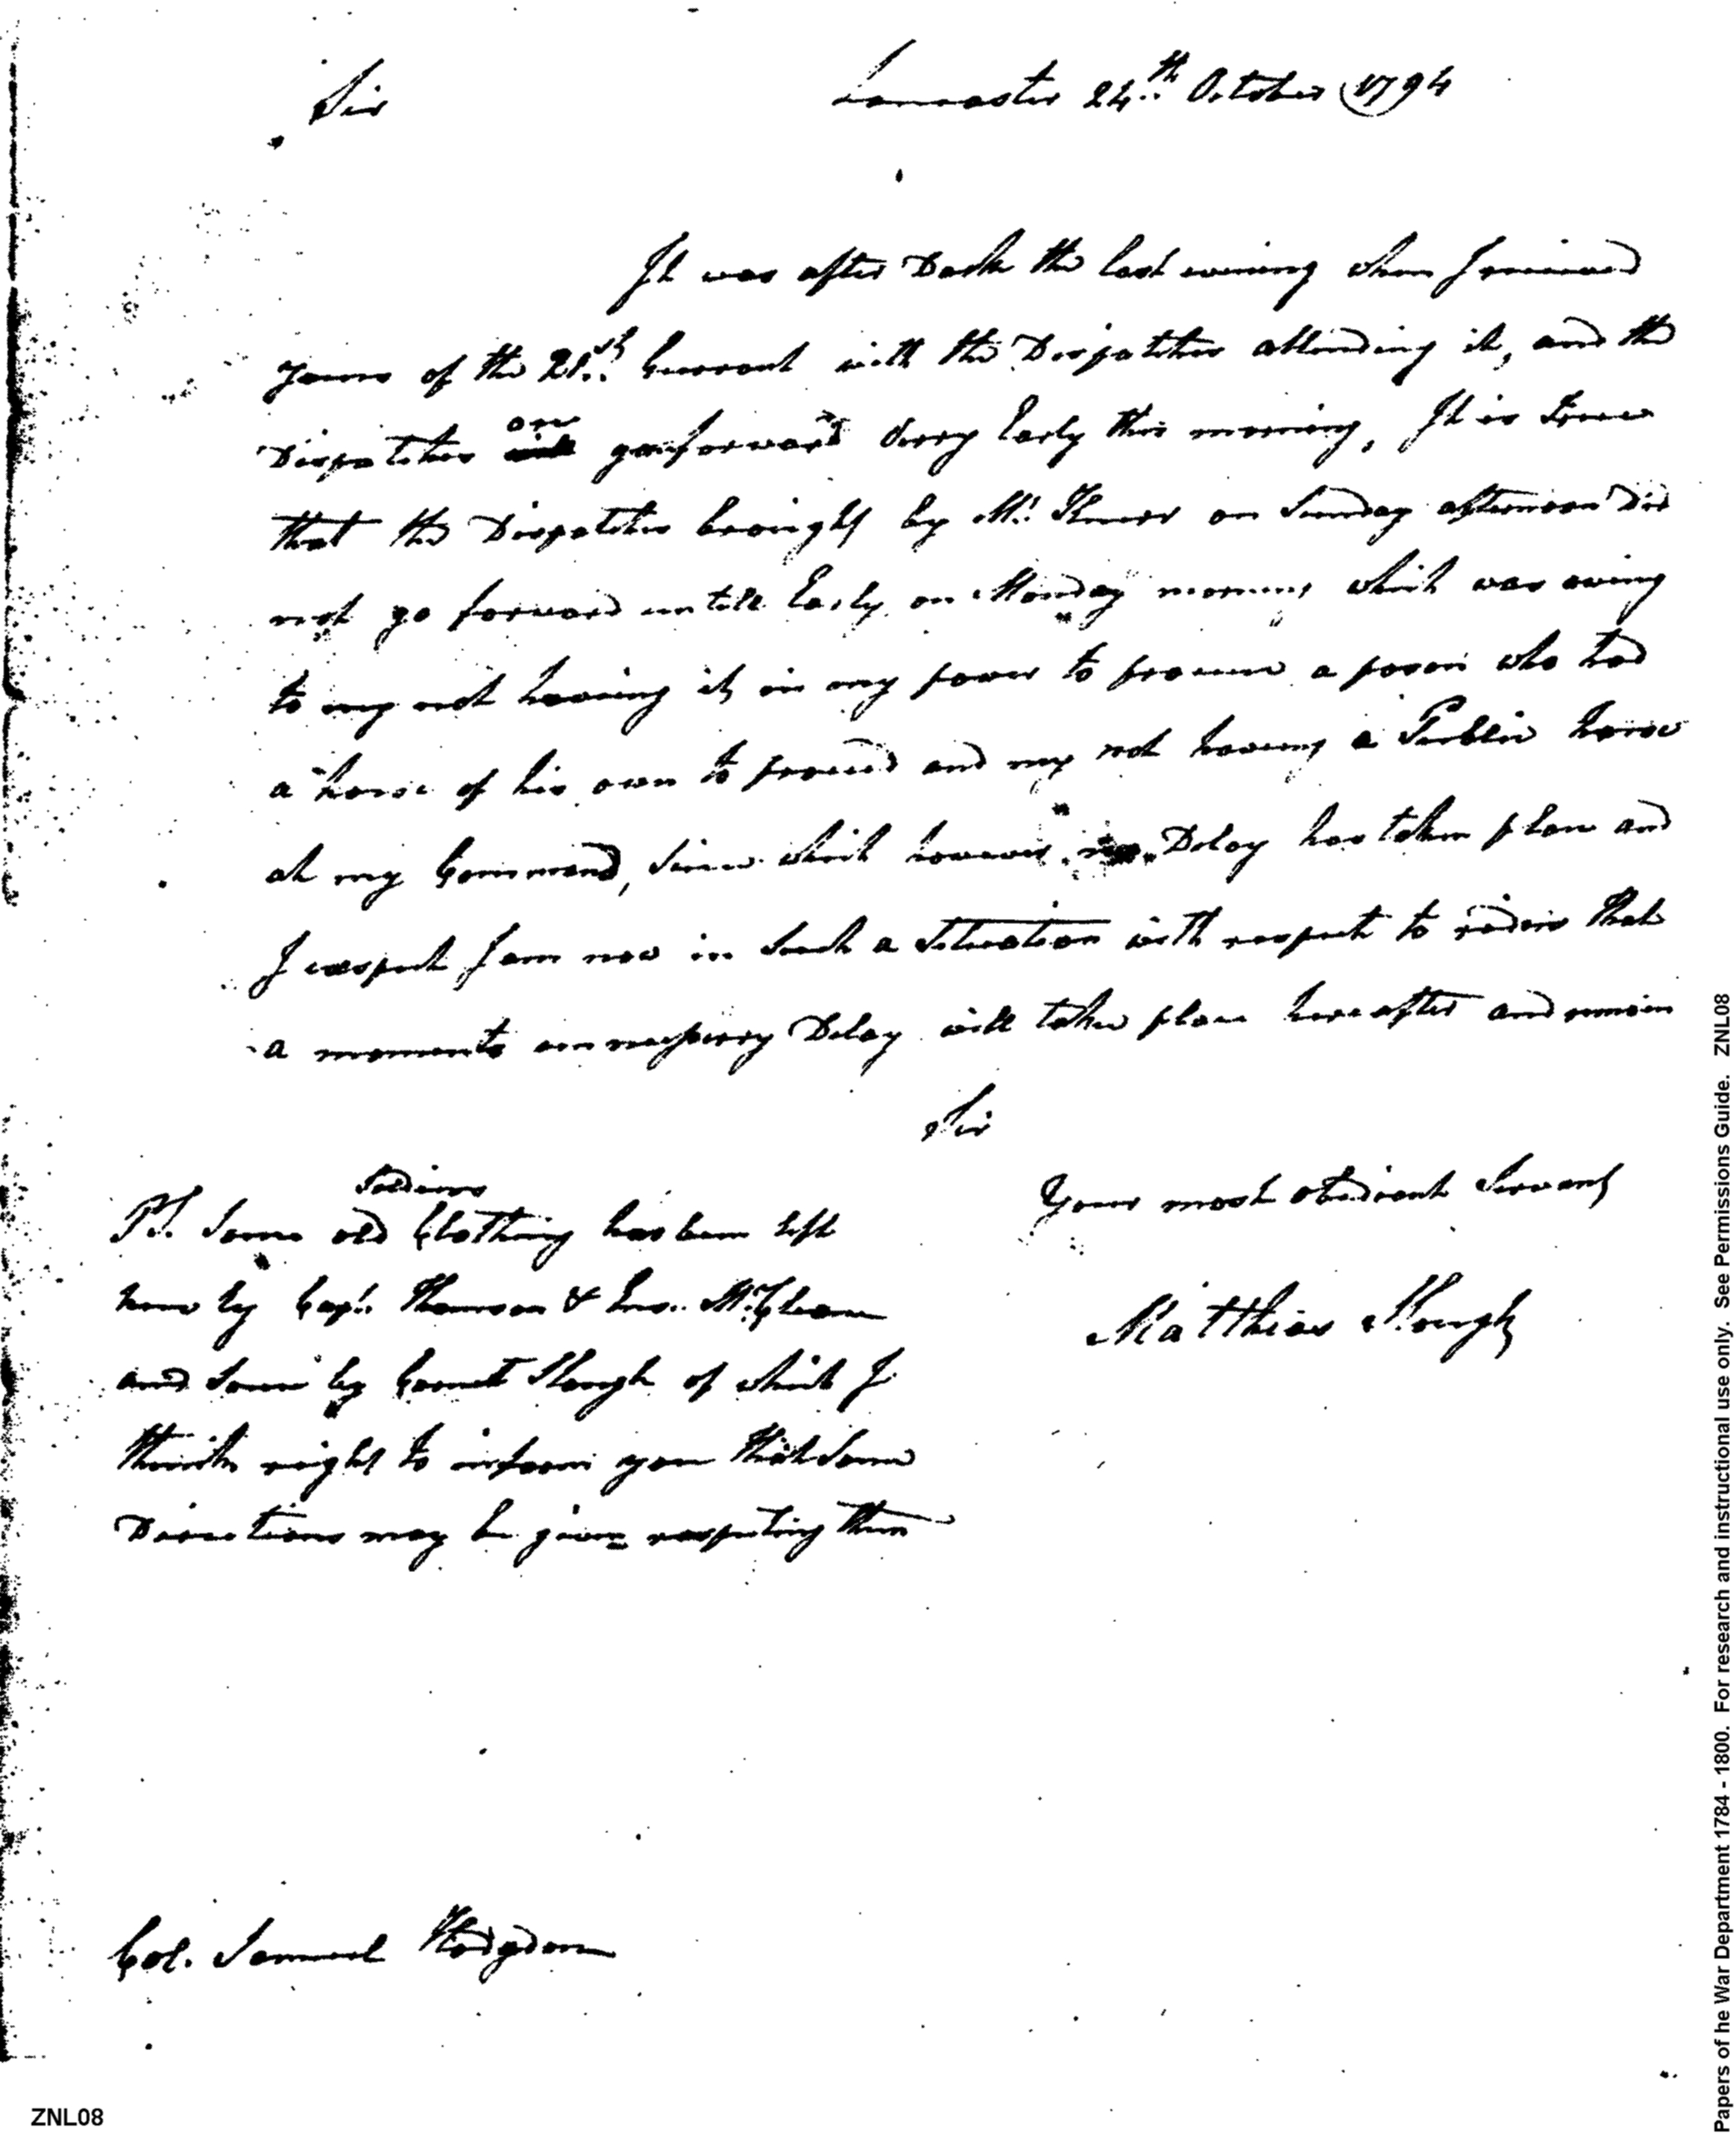 Sir
Lancaster 24th October 1794
It was after Dark the last evening when I received
yours of the 21st Currant with the Dispatches attending it, and the
Dispatches on gon forward verry Early this morning, It is true
that the Dispatches brought by Mr. on Sunday afternoon Did
not go forward untill Early on Monday morning which was owing
to my not having it in my power to procure a person who had
a horse of his own to proceed and my not having a Public horse
at my Command, Since which however no Delay has taken place and
I expect I am now in Such a Situation with respect to riders that
a moments unnessessary Delay will take place hereafter and remain
Sir
Your most obedient Servant
Matthias Slough
PS. Some old Soldiers Clothing has been left
here by Capt. Thomson & Ens. McCleane
and Some by Cornet Slough of which I
think right to inform you that Some
Directions may be given respecting them
Col. Samuel Hodgdon
ZNL08
Papers of he War Department 1784 - 1800. For research and instructional use only. See Permissions Guide. ZNL08